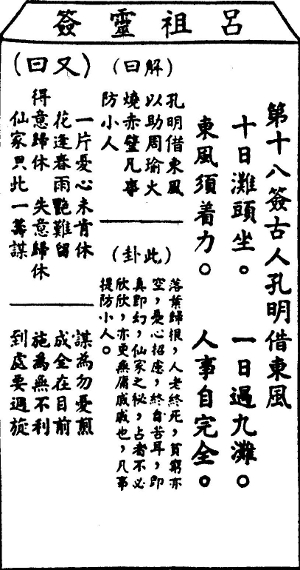 呂祖靈簽
第十八簽古人孔明借東風
十日灘頭坐。 一日過九灘。
東風須着力。 人事自完全。
(解曰)
孔明借東風
以助周瑜火
燒赤壁凡事
防小人。
(此卦)
落葉歸根，人老終死，貧窮亦
空，憂心招虛，終自苦耳，即
真即幻，仙家之秘，占者不必
欣欣，亦更無庸戚戚也，凡事
提防小人。
(又曰)
一片憂心未肯休
花逢春雨艷難留
得意歸休 失意歸休
仙家只此一籌謀
謀為勿憂煎
成全在目前
施為無不利
到處要週旋